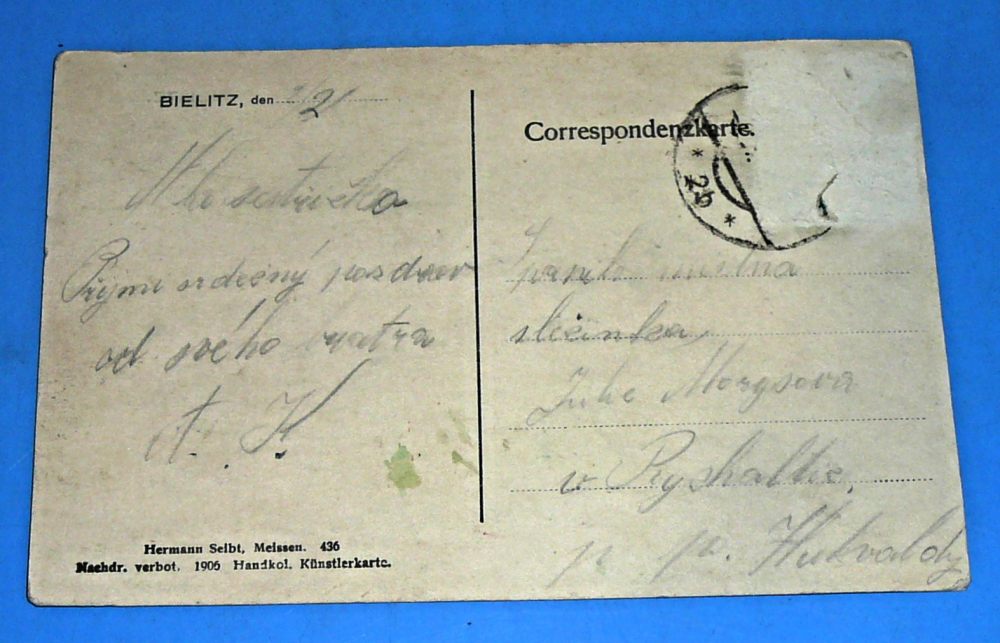 BIELITZ, den 21
Přijmi srdečný pozdrav
od svého bratra
A. K.
Hermann Seibt, Meissen. 436
Nachdr. verbot. 1906 Handkol. Künstlerkarte.
Correspondenzkarte.
* 2b *
slečinka
Morysova
v Rychaltic.
p. p. Hukvaldy